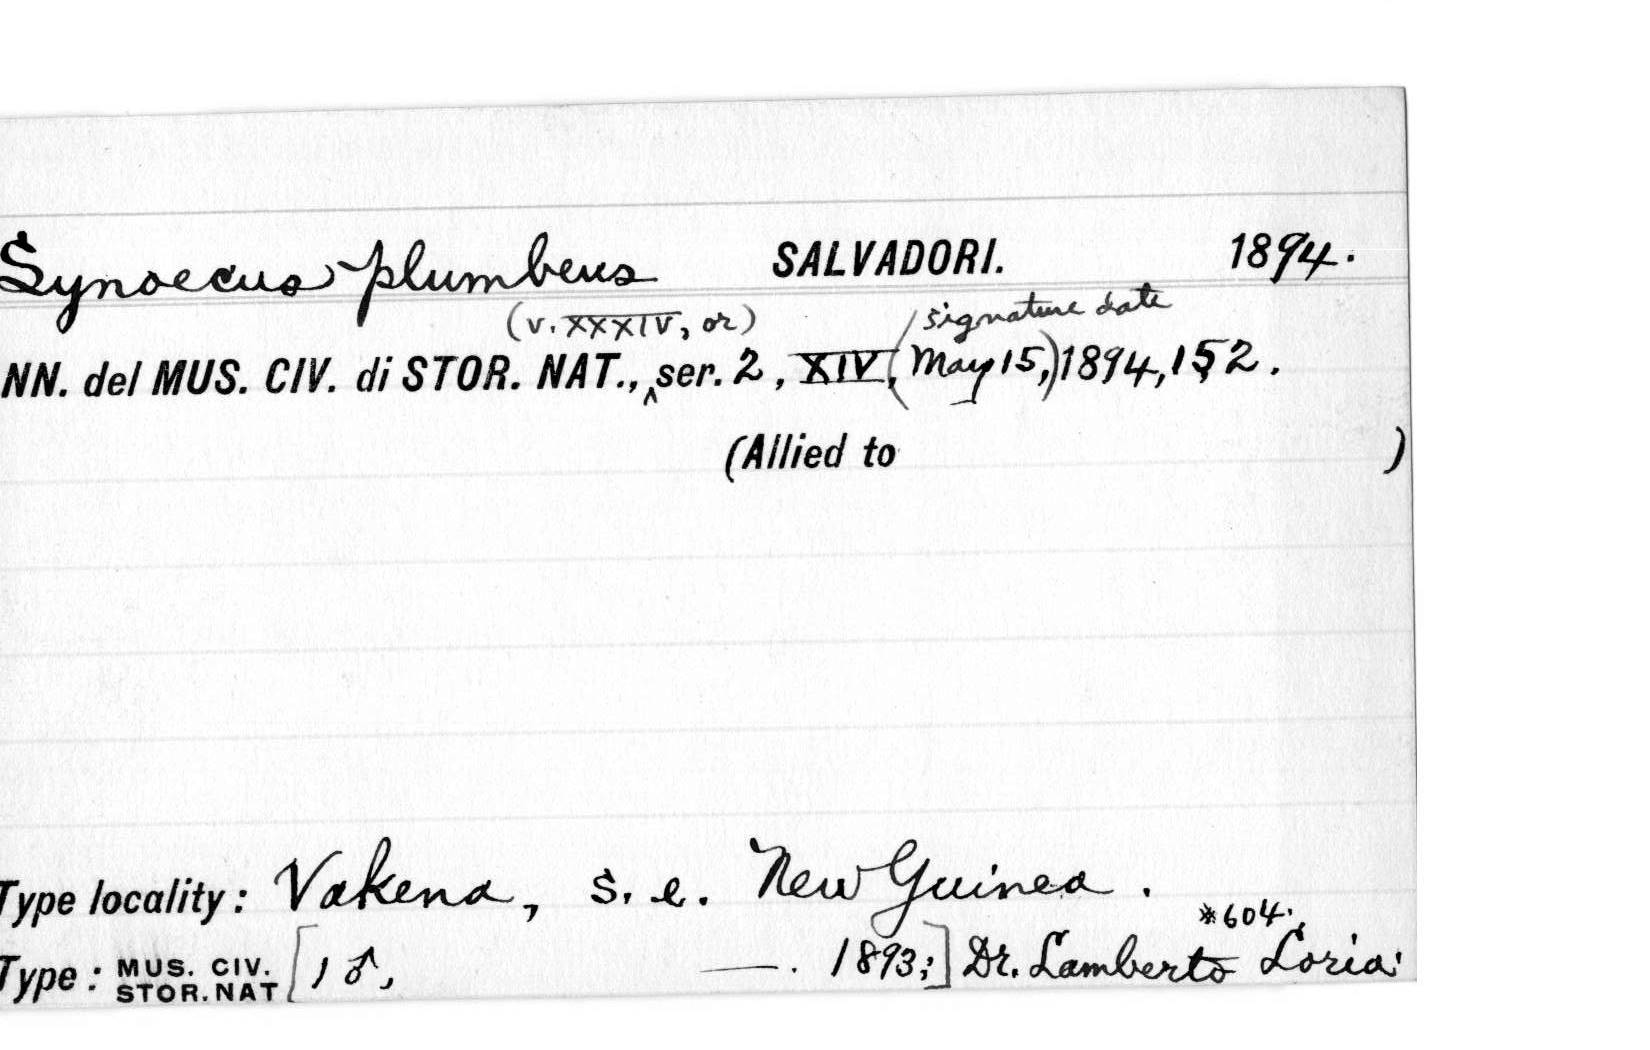 Synoecus plumbeus SALVADORI. 1894.
(v. XXXIV, or) signature date
NN. del MUS. CIV. di STOR. NAT., ^ ser. 2, XIV, (May 15,) 1894, 152.
(Allied to )
Type locality: Vakena, s. e. New Guinea.
*604.,
Type: MUS. CIV. STOR. NAT [1 ♂, —. 1893;] Dr. Lamberto Loria.